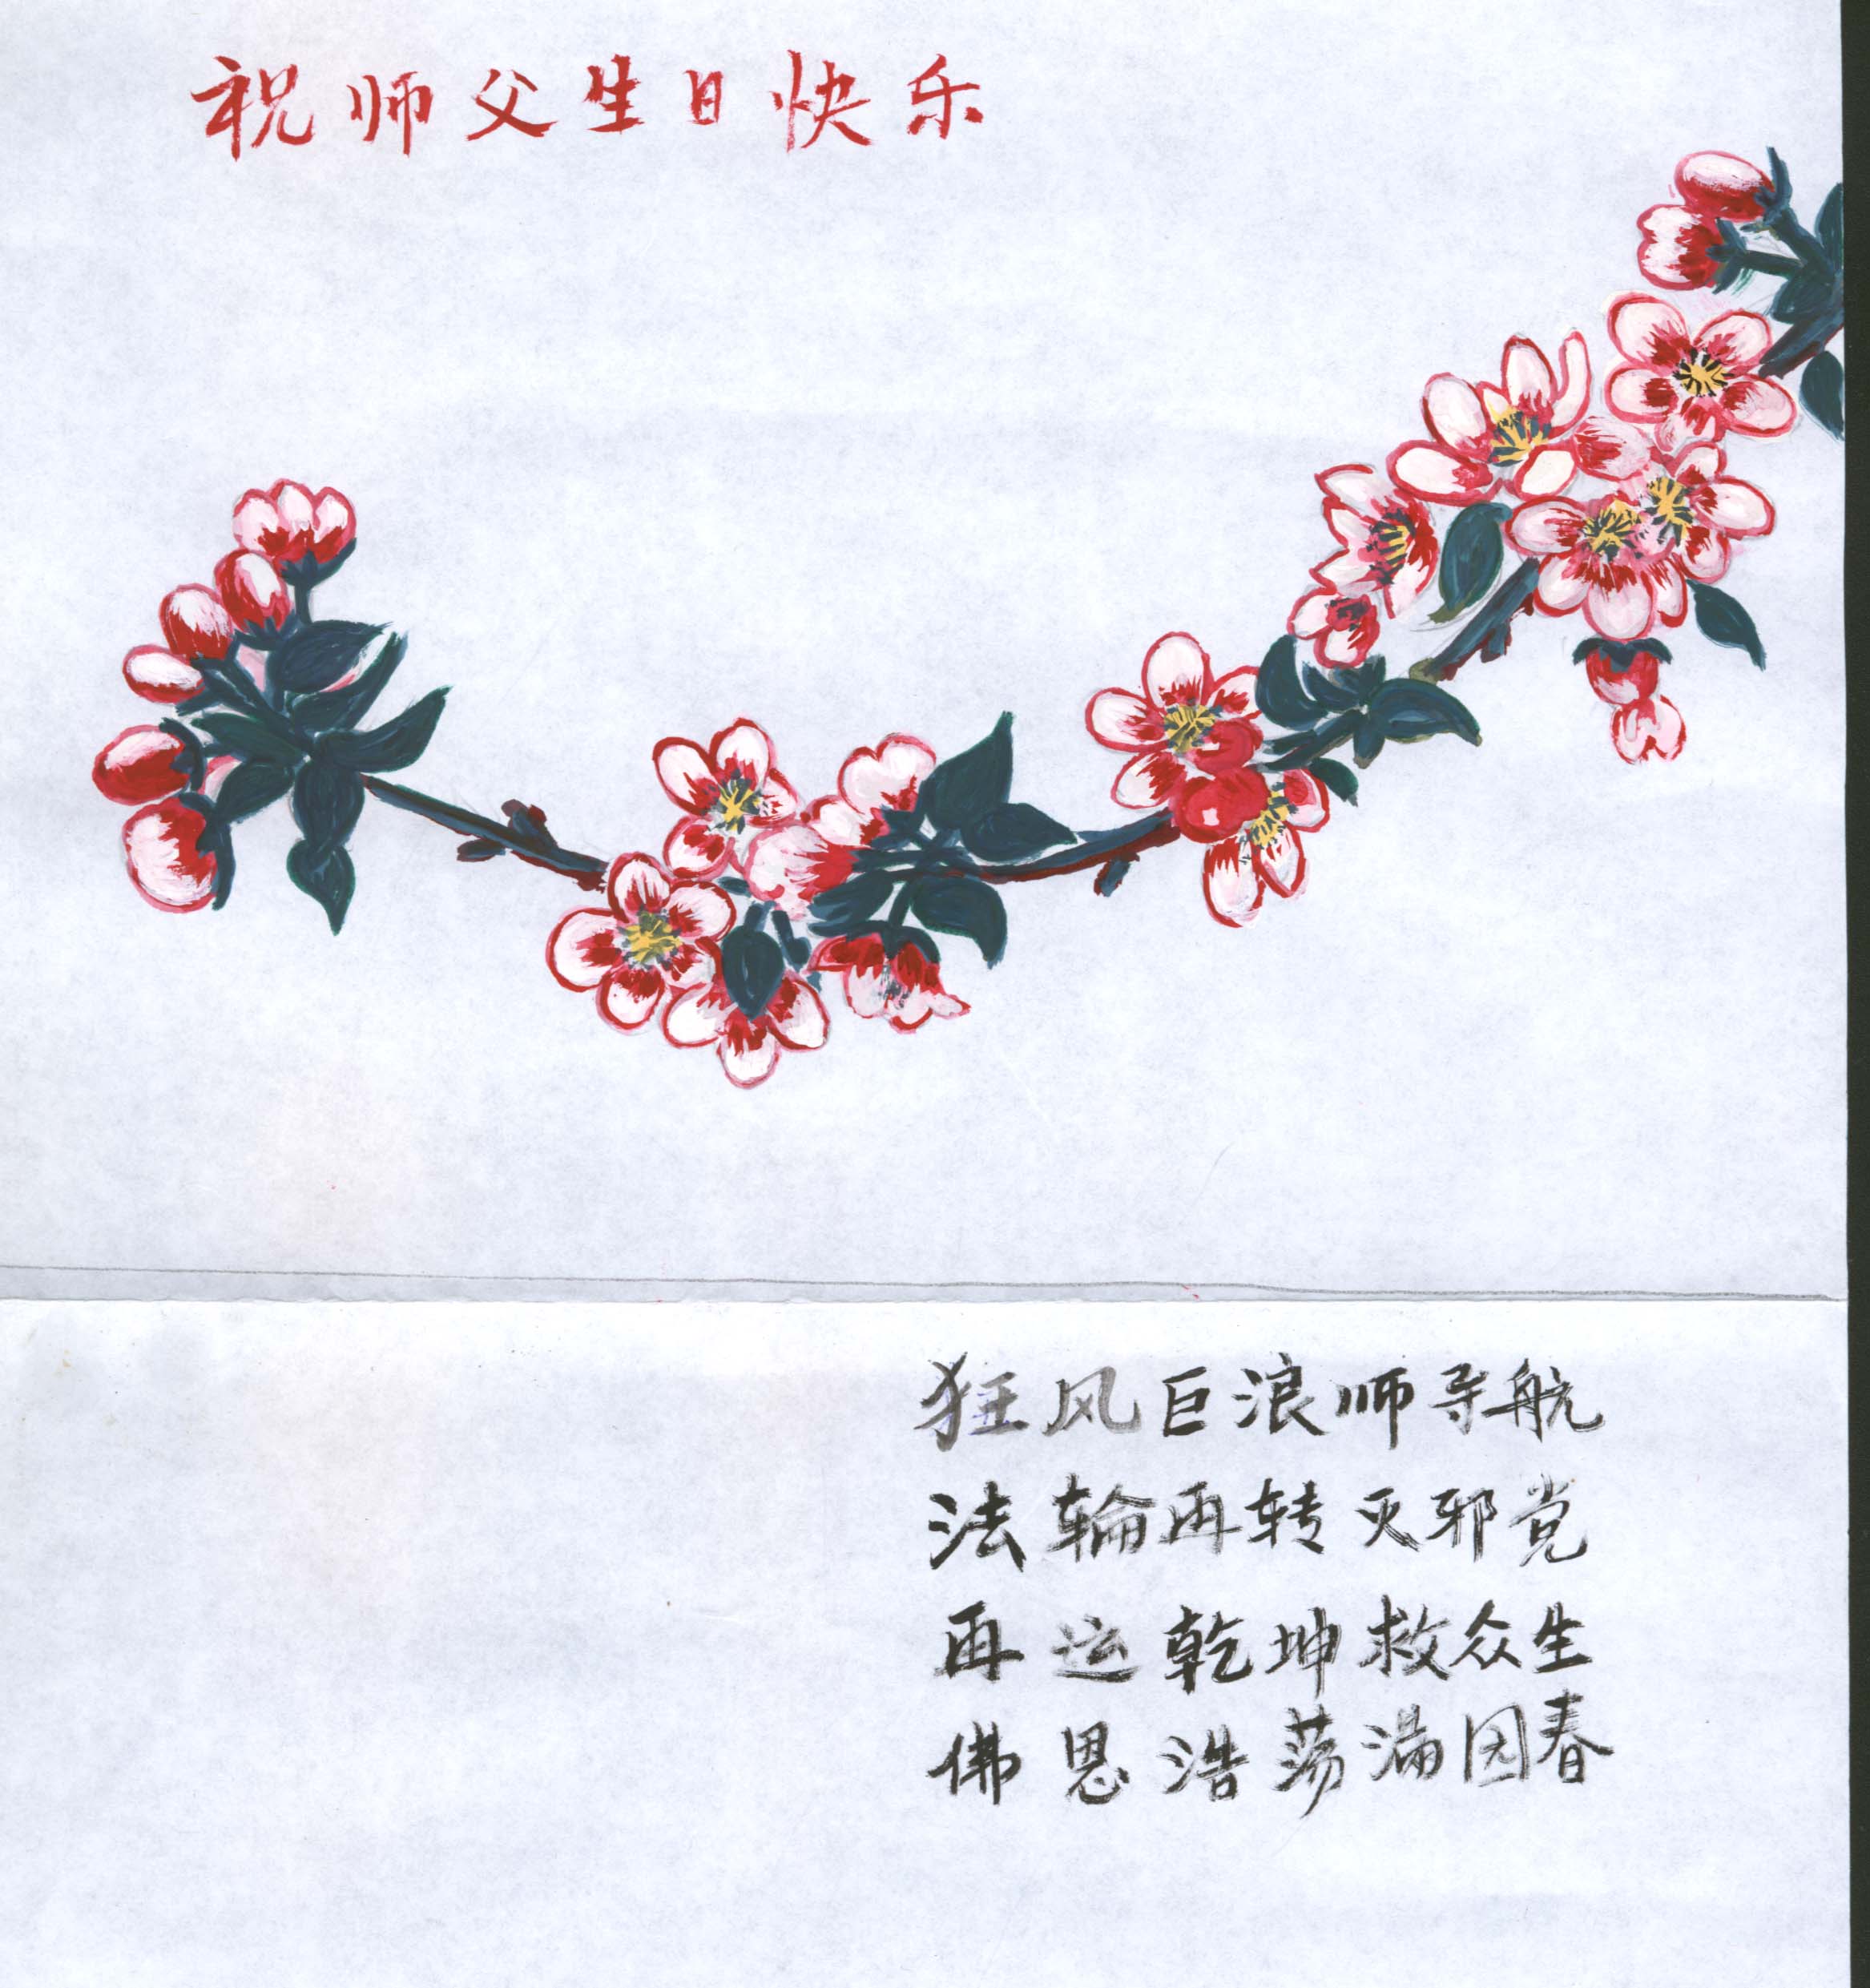 祝师父生日快乐
狂风巨浪师导航
法轮再转灭邪党
再运乾坤救众生
佛恩浩荡满园春